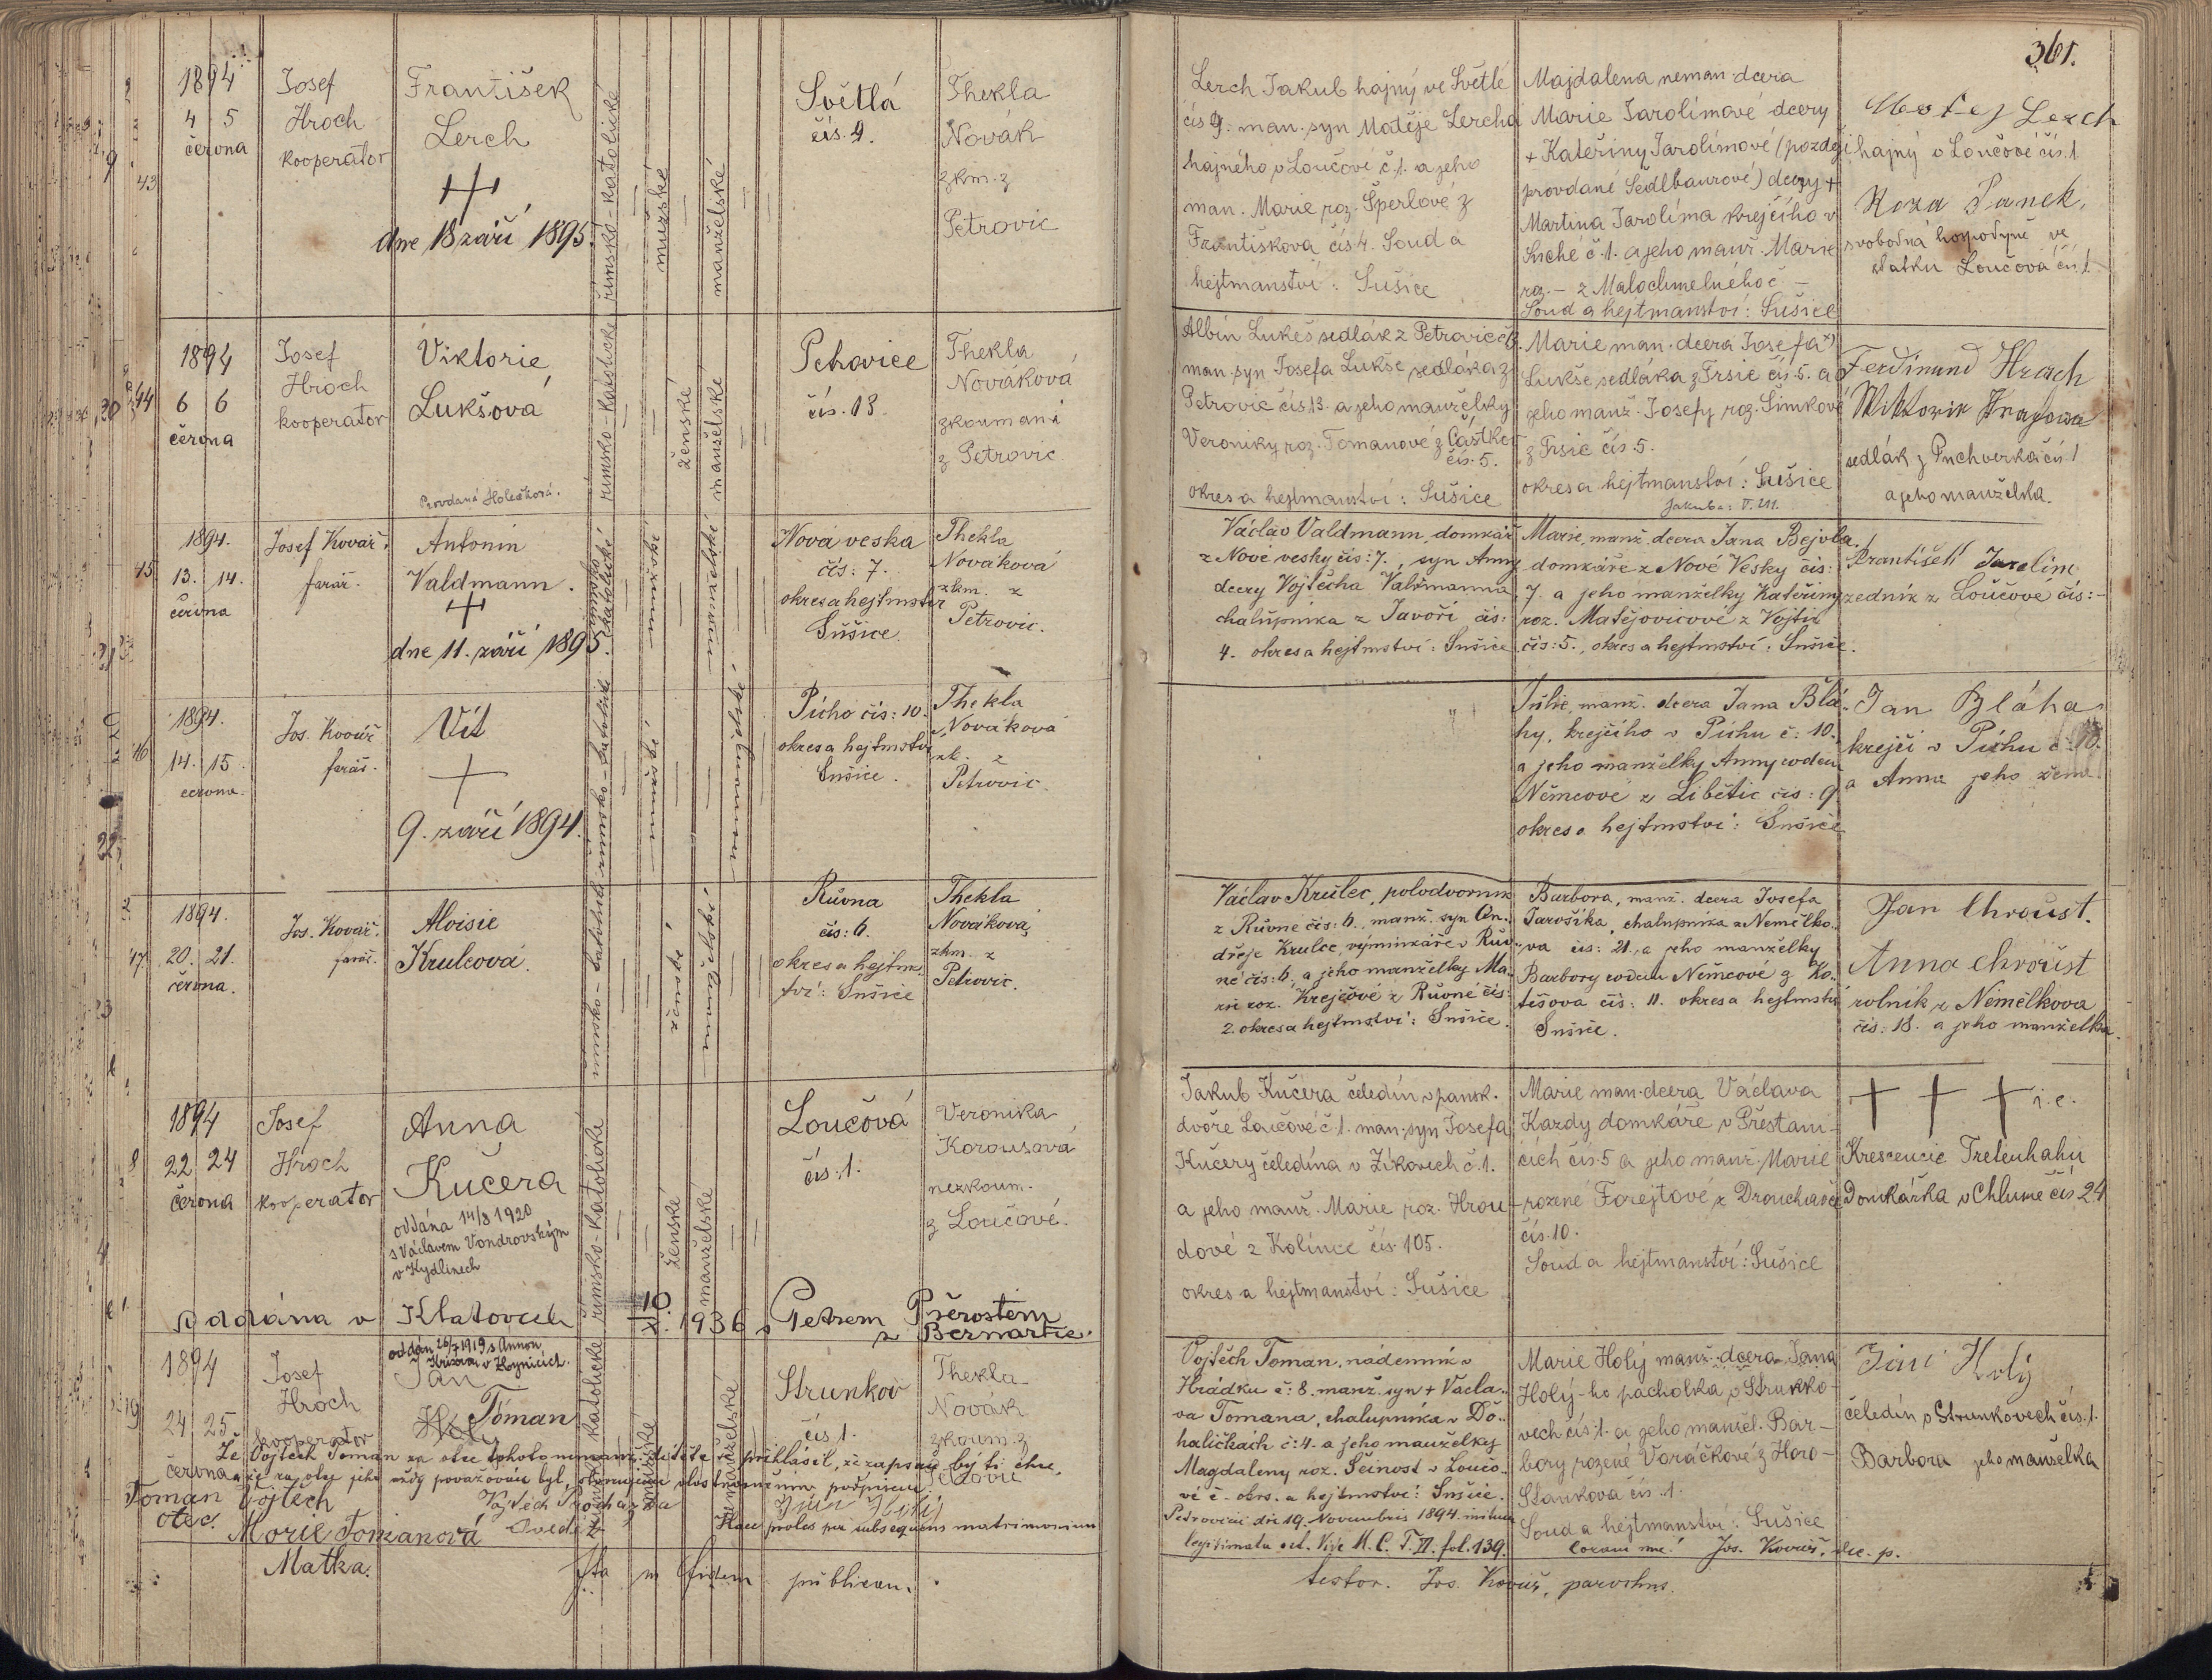 361.
1894
4 5
června
43
Josef
Hroch
kooperator
František
Lerch
dne 18 září 1895.
římsko-katolické
mužské
manželské
Světlá
čís. 9.
Thekla
Novák
zkm. z
Petrovic
Lerch Jakub hajný ve Světlé
čís 9. man. syn Matěje Lercha
hajného v Loučové č. 1. a jeho
man. Marie roz. Šperlové z
Františkova čís 4. Soud a
hejtmanství: Sušice
Majdalena neman. dcera
Marie Jarolímové dcery
+ Kateřiny Jarolímové (pozděj
provdané Sedlbaurové) dcery +
Martina Jarolíma krejčího v
Suché č. 1. a jeho manž. Marie
roz. – z Malochmelného č –
Soud a hejtmanství: Sušice
Matej Lerch
hajný v Loučové čís. 1
Roza Panek,
svobodná hospodyně ve
statku Loučová čís 1.
1894
44
6 6
června
Josef
Hroch
kooperator
Viktorie
Lukšová
Provdaná Holečková.
římsko-katolické
ženské
manželské
Petrovice
čís. 13.
Thekla
Nováková
zkoumaná
z Petrovic
Albín Lukeš sedlák z Petrovic č 13.
man. syn Josefa Lukše sedláka z
Petrovic čís 13. a jeho manželky
Veroniky roz. Tomanové z Částkov
čís. 5.
okres a hejtmanství: Sušice
Marie man. dcera Josefa
Lukše, sedláka z Trsic čís. 5. a
jeho manž. Josefy roz. Šimkové
z Trsic čís. 5.
okres a hejtmanství: Sušice
Ferdinand Hrach
sedlák z Puchverka čís 1
a jeho manželka.
1894.
45
13. 14.
června
Josef Kovář,
farář.
Antonín
Valdmann.
dne 11. září 1895.
Nová veska
čís: 7.
okres a hejtmství
Sušice.
Thekla
Nováková
zkm. z
Petrovic.
Václav Valdmann, domkář
z Nové vesky čís: 7., syn Anny
dcery Vojtěcha Valdmanna,
chalupníka z Javoří čís:
4. okres a hejtmství: Sušice
Marie, manž. dcera Jana Bejvla,
domkáře z Nové Vesky čís:
7. a jeho manželky Kateřiny
roz. Matějovicové z Vojtic
čís: 5., okres a hejtmství: Sušice.
František Jarolím
zedník z Loučové čís: –
1894.
46
14. 15.
června.
Jos. Kovář
farář.
Vít
9. září 1894.
římsko-katolické
mužské
nemanželské
Pícho čís: 10.
okres a hejtmství
Sušice.
Thekla
Nováková
zk. z
Petrovic.
Julie, manž. dcera Jana Blá-
hy, krejčího v Píchu č: 10.
a jeho manželky Anny rodem
Němcové z Libětic čís: 9.
okres a hejtmství: Sušice
Jan Bláha
krejčí v Píchu č. 10.
a Anna jeho žena.
1894.
47
20. 21.
června.
Jos. Kovář.
farář.
Aloisie
Krulcová.
římsko-katolické
ženské
manželské
Růvna
čís: 6.
okres a hejtm-
ství: Sušice
Thekla
Nováková,
zkm. z
Petrovic.
Václav Krulec, polodvorník
z Růvné čís: 6., manž. syn On-
dřeje Krulce, výminkáře v Rův-
né čís: 6, a jeho manželky Ma-
rie roz. Krejčové z Růvné čís:
2. okres a hejtmství: Sušice.
Barbora, manž. dcera Josefa
Jarošíka, chalupníka z Němčlko-
va čís: 21., a jeho manželky
Barbory rodem Němcové z Ko-
tišova čís: 11. okres a hejtmství
Sušice.
Jan Chroust.
Anna Chroust
rolník z Němčlkova
čís: 18. a jeho manželka.
1894
8
22 24
června
Josef
Hroch
kooperator
Anna
Kučera
oddána 14/8 1920
s Václavem Vondrovským
v Kydlinech
římsko-katolické
ženské
manželské
Loučová
čís. 1.
Veronika
Korousová
nezkoum.
z Loučové.
Jakub Kučera čeledín v pansk.
dvoře Loučové č. 1. man. syn Josefa
Kučery čeledína v Žíkovech č. 1.
a jeho manž. Marie roz. Hrou-
dové z Kolince čís. 105.
okres a hejtmanství: Sušice
Marie man. dcera Václava
Kazdy domkáře v Přestani-
cích čís. 5 a jeho manž. Marie
rozené Forejtové z Drouhavče
čís. 10.
Soud a hejtmanství: Sušice
+ + + i. e.
Krescencie
Domkářka v Chlumě čís 24
oddána v Klatovech 10. 1936 s Petrem Přerostem
z Bernartic.
1894
24 25
června
Josef
Hroch
kooperator
oddán 26/7 1919 s Annou
Jan
Toman
Strunkov
čís 1.
Thekla
Novák
zkoum. z
Petrovic
Vojtěch Toman, nádenník v
Hrádku č: 8. manž. syn + Václa-
va Tomana, chalupníka v Do-
haličkách č: 4. a jeho manželky
Magdaleny roz. Šeinost v Loučo-
vé č – okrs. a hejtmství: Sušice.
Petrovicii die 19. Novembris 1894.
legitimata est. Vide M. C. T. VI. fol. 139.
Marie Holý manž. dcera Jana
Holý-ho pacholka v Strunko-
vech čís. 1. a jeho manžel. Bar-
bory rozené Voráčkové z Horo-
Stankova čís. 1.
Soud a hejtmanství: Sušice
coram me! Jos. Kovář,
Jan Holý
čeledín v Strunkovech čís. 1.
Barbora jeho manželka
Že Vojtěch Toman za otce tohoto nemanž. dítěte se přihlásil, že zapsán býti chce,
Toman Vojtěch
otec.
Marie Tomanová
Matka.
Vojtěch Procházka
Haec proles per subsequens matrimonium
Ita in fidem publicam.
testor. Jos. Kovář, parochus.